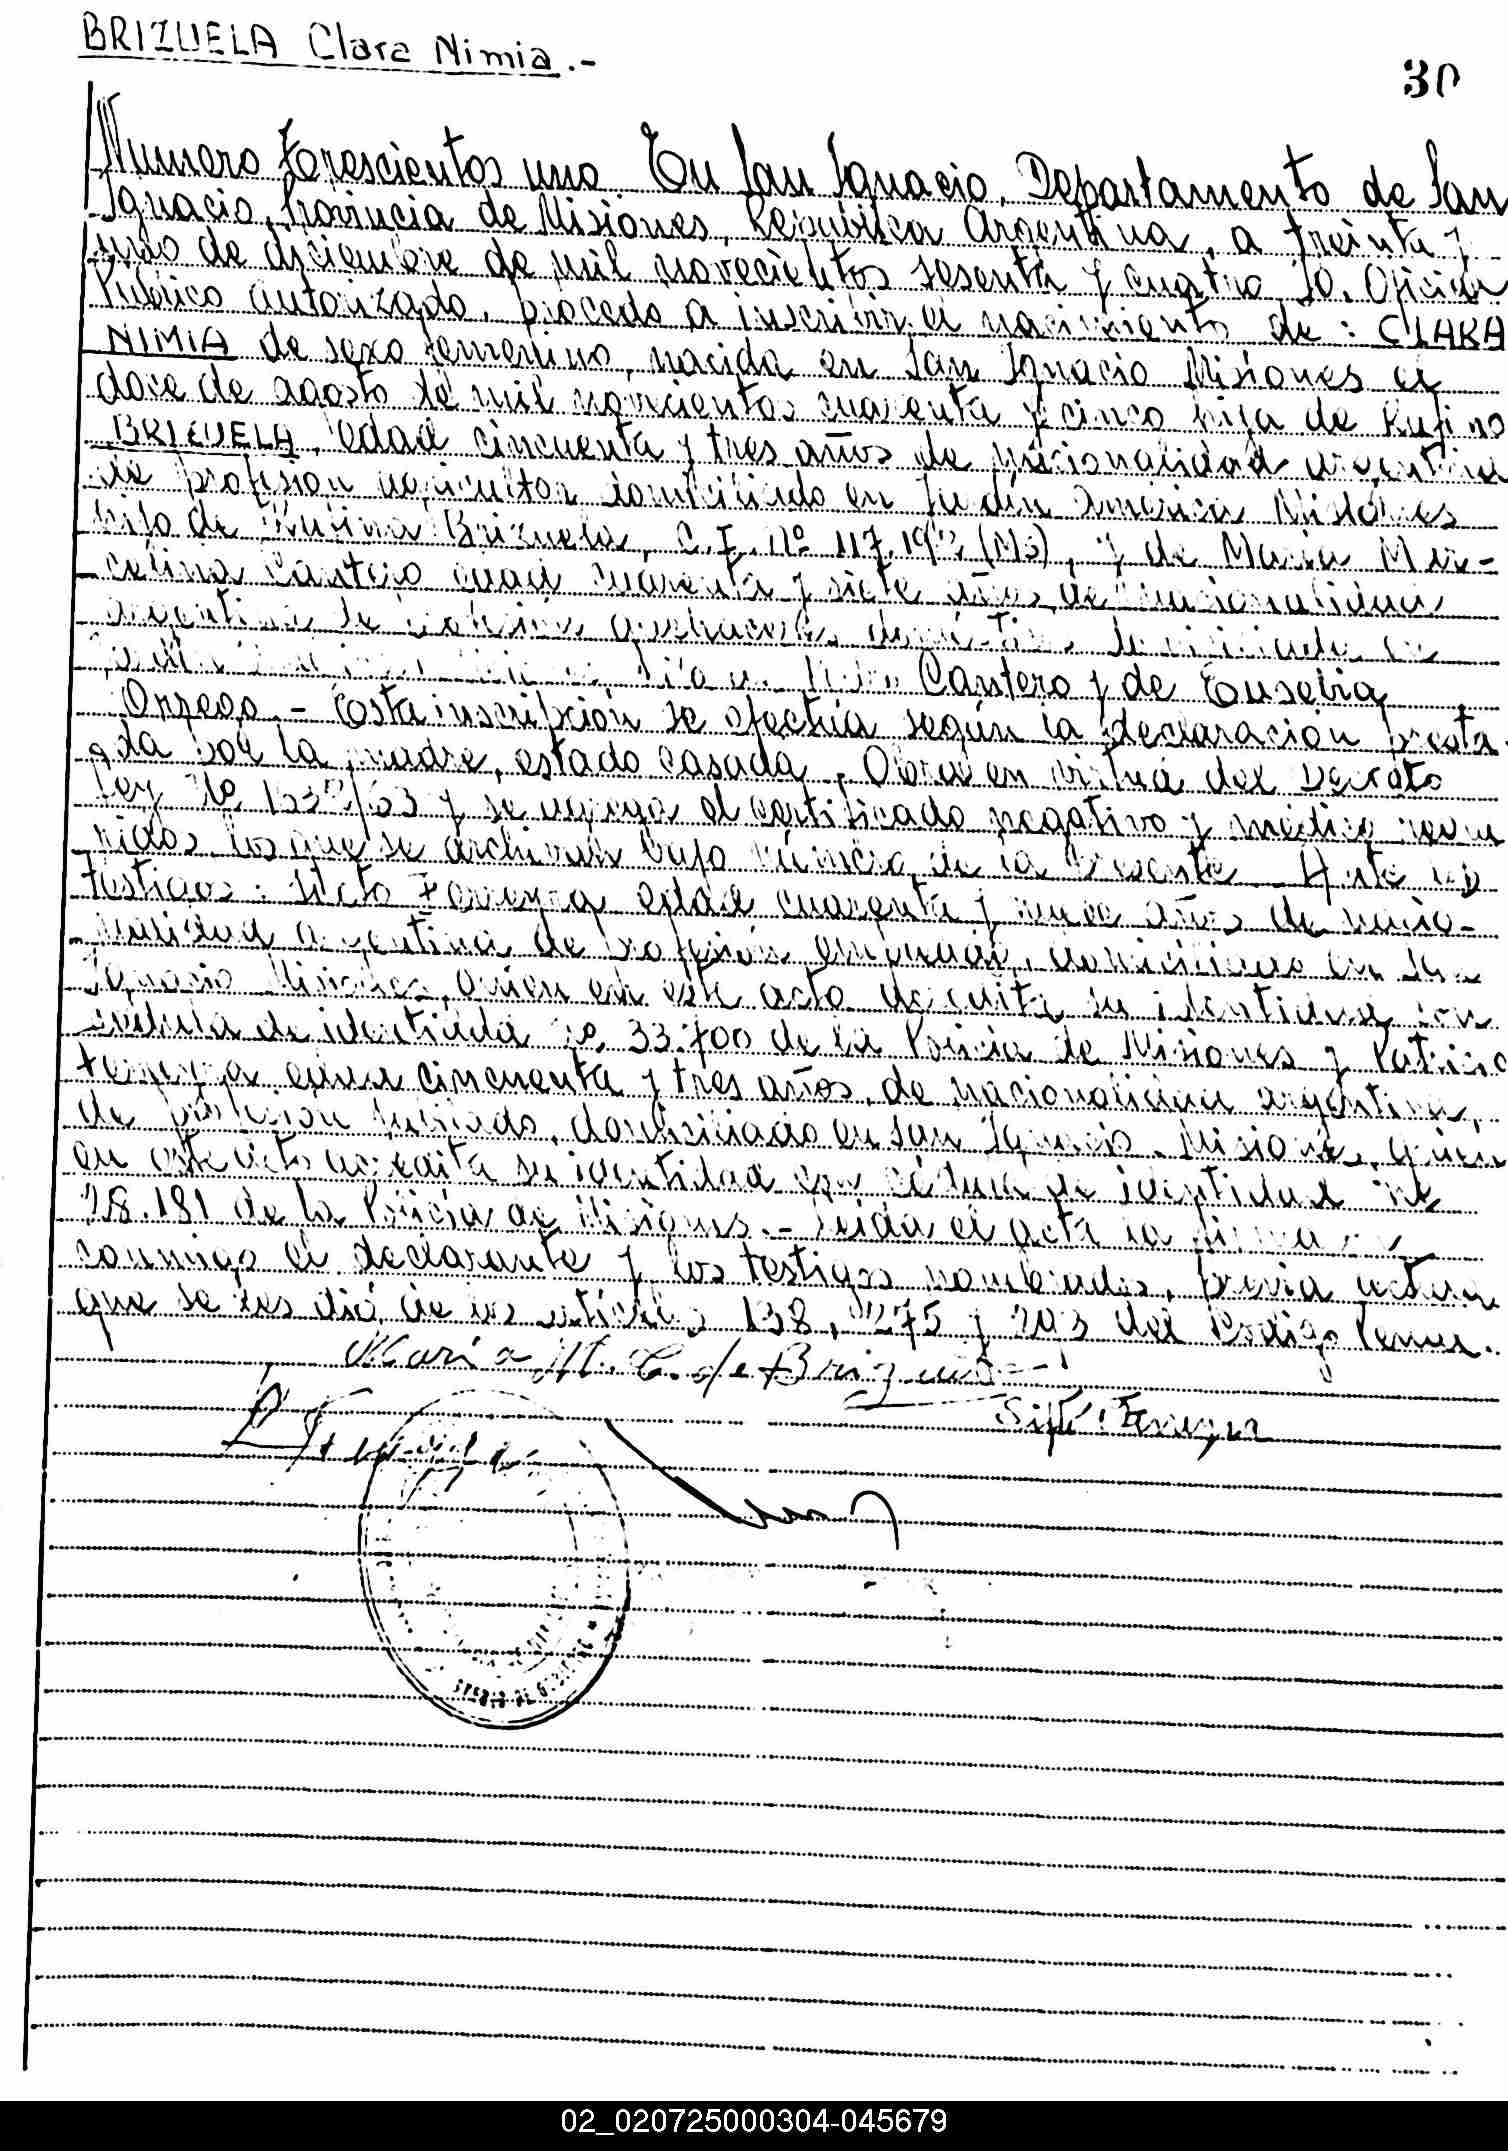 BRIZUELA Clara Nimia.-
30
Numero trescientos uno. En San Ignacio, Departamento de San
Ignacio, Provincia de Misiones, República Argentina, a treinta y
uno de diciembre de mil novecientos sesenta y cuatro, Yo, Oficial
Público autorizado, procedo a inscribir el nacimiento de: CLARA
NIMIA de sexo femenino, nacida en San Ignacio Misiones el
doce de agosto de mil novecientos cuarenta y cinco hija de Rufino
BRIZUELA, edad cincuenta y tres años de nacionalidad argentina
de profesión agricultor domiciliado en Jardín América Misiones
hijo de Rufina Brizuela, C.I. Nº (Ms), y de María Mar-
celina Cantero edad cuarenta y siete años, de nacionalidad
argentina de profesión quehaceres domésticos, domiciliada en
Cantero y de Eusebia
Orrego.- Esta inscripción se efectúa según la declaración presta-
da por la madre, estado casada, Obra en virtud del Decreto
Ley Nº y se agrega el certificado negativo y médico
los que se archivan bajo número de la presente. Ante los
testigos: Sixto Ferreyra edad cuarenta y nueve años de nacio-
nalidad argentina de profesión empleado, domiciliado en San
Ignacio Misiones, quien en este acto acredita su identidad con
cédula de identidad Nº 33.700 de la Policía de Misiones y Patricio
Ferreyra edad cincuenta y tres años, de nacionalidad argentina,
de profesión jubilado, domiciliado en San Ignacio, Misiones, quien
en este acto acredita su identidad con cédula de identidad Nº
28.181 de la Policía de Misiones.- Leida el acta la firma
conmigo el declarante y los testigos nombrados, previa lectura
que se les dió de los artículos 138, 275 y 293 del Código Penal.
María M. C. de Brizuela
Sixto Ferreyra
02_020725000304-045679